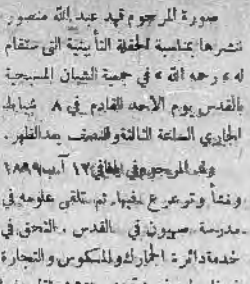 صورة المرحوم فهد عبدالله منصور
ننشرها بمناسبة الحفلة التأبينية التي ستقام
له «رحمه الله» في جمعية الشبان المسيحية
بالقدس يوم الاحد القادم في ٨ شباط
الجاري الساعة الثالثة والنصف بعد الظهر.
ولد المرحوم في يافا في ١٢ آب ١٨٨٩
ونشأ وترعرع فيها. ثم تلقى علومه في
مدرسة صهيون في القدس. التحق في
خدمة دائرة الجمارك والمكوس والتجارة